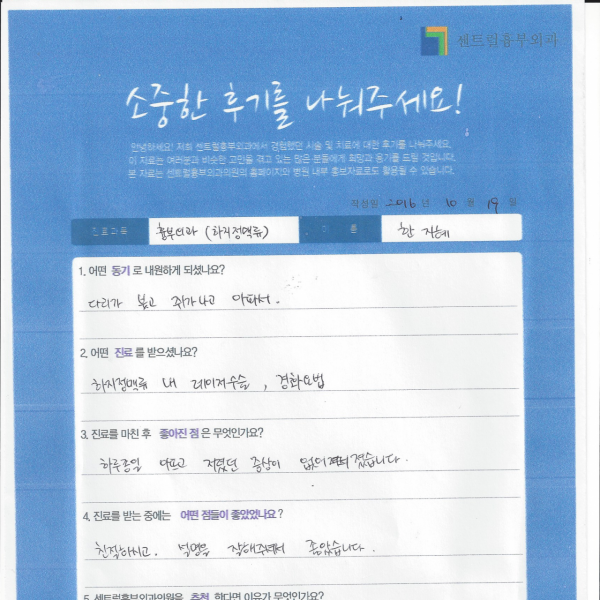 센트럴흉부외과
소중한 후기를 나눠주세요!
안녕하세요! 저희 센트럴흉부외과에서 경험했던 시술 및 치료에 대한 후기를 나눠주세요.
이 자료는 여러분과 비슷한 고민을 겪고 있는 많은 분들에게 희망과 용기를 드릴 것입니다.
본 자료는 센트럴흉부외과의원의 홈페이지와 병원 내부 홍보자료로도 활용될 수 있습니다.
작성일 2016 년 10 월 19 일
진료과목 흉부외과 (하지정맥류) 이 름 한 지혜
1. 어떤 동기로 내원하게 되셨나요?
다리가 붓고 쥐가나고 아파서.
2. 어떤 진료를 받으셨나요?
하지정맥류 내 레이저수술, 경화요법
3. 진료를 마친 후 좋아진 점은 무엇인가요?
하루종일 아프고 저렸던 증상이 없어졌습니다.
4. 진료를 받는 중에는 어떤 점들이 좋았었나요?
친절하시고. 설명을 잘해주셔서 좋았습니다.
5. 센트럴흉부외과의원을 추천 한다면 이유가 무엇인가요?